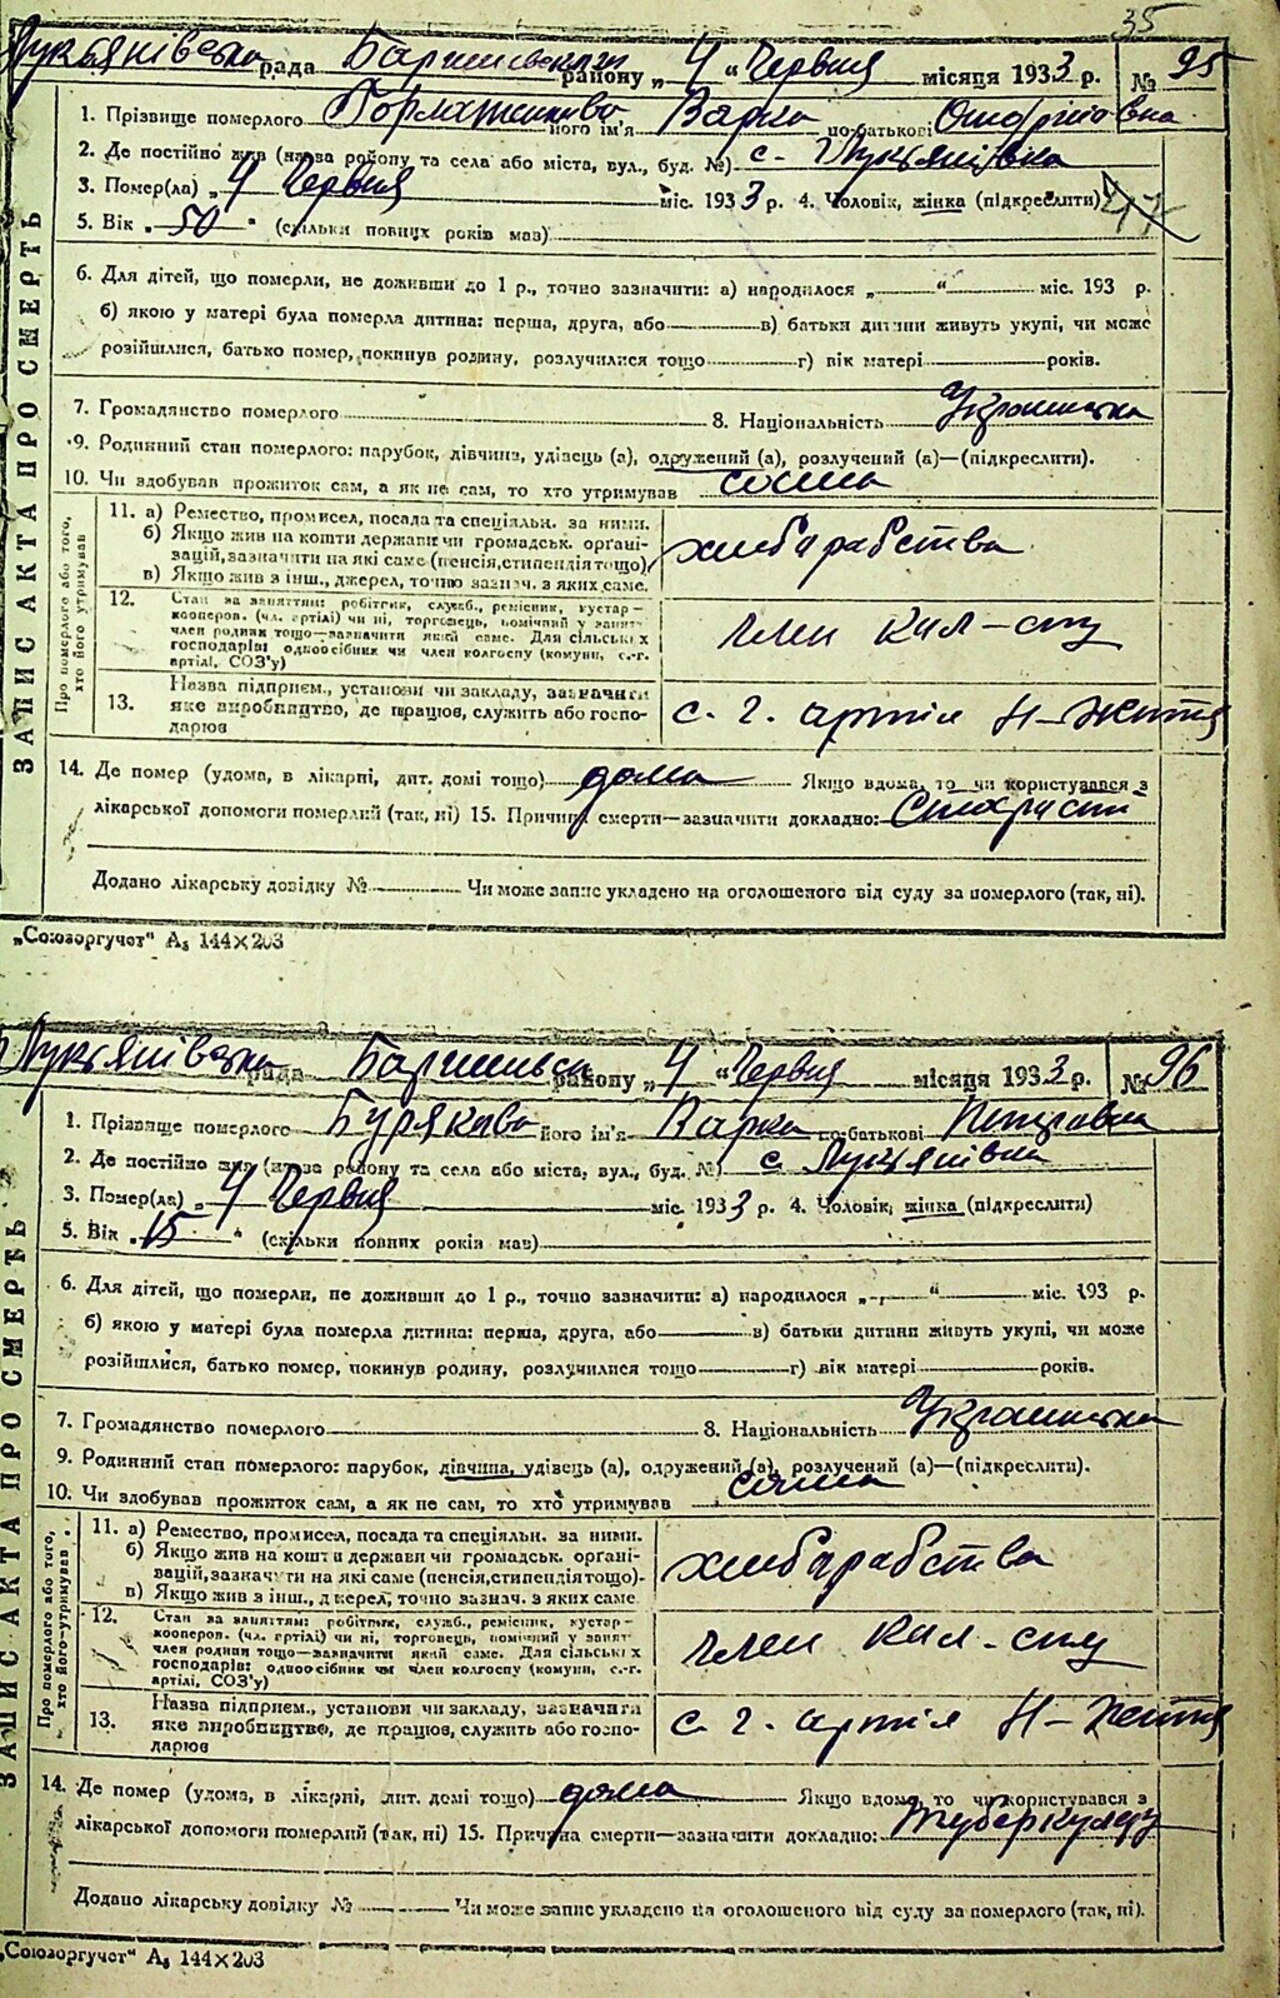 35
Лукьянівська рада Баришевськ району „ 4 “ Червня місяця 1933 р. № 95
1. Прізвище померлого його ім'я Варка по-батькові Онофріївна
2. Де постійно жив (назва району та села або міста, вул., буд. №) с. Лукьянівка
3. Помер(ла) „ 4 Червня міс. 1933 р. 4. Чоловік, жінка (підкреслити)
5. Вік „ 50 “ (скільки повних років мав)
6. Для дітей, що померли, не доживши до 1 р., точно зазначити: а) народилося „ “ міс. 193 р.
б) якою у матері була померла дитина: перша, друга, або в) батьки дитини живуть укупі, чи може
розійшлися, батько помер, покинув родину, розлучилися тощо г) вік матері років.
7. Громадянство померлого 8. Національність Українська
9. Родинний стан померлого: парубок, дівчина, удівець (а), одружений (а), розлучений (а)—(підкреслити).
10. Чи здобував прожиток сам, а як не сам, то хто утримував сама
ЗАПИС АКТА ПРО СМЕРТЬ
Про померлого або того, хто його утримував
11. а) Ремество, промисел, посада та спеціяльн. за ними.
б) Якщо жив на кошти держави чи громадськ. органі-
зацій, зазначити на які саме (пенсія, стипендія тощо)
в) Якщо жив з інш., джерел, точно зазнач. з яких саме.
хлібарабства
12. Стан за заняттям: робітник, служб., ремісник, кустар—
кооперов. (чл. артілі) чи ні, торговець, помічний у занят.
член родини тощо—зазначити який саме. Для сільських
господарів: одноосібник чи член колгоспу (комуни, с.-г.
артілі, СОЗ'у)
член кал-спу
13. Назва підприєм., установи чи закладу, зазначити
яке виробництво, де працюв, служить або госпо-
дарюв
с. г. артіл Н-Життя
14. Де помер (удома, в лікарні, дит. домі тощо) дома Якщо вдома, то чи користувався з
лікарської допомоги померлий (так, ні) 15. Причина смерти—зазначити докладно: Старисти
Додано лікарську довідку № Чи може запис укладено на оголошеного від суду за померлого (так, ні).
„Союзоргучет“ А₅ 144×203
Лукьянівська рада Баришевськ району „ 4 “ Червня місяця 1933 р. № 96
1. Прізвище померлого Бурякова його ім'я Варка по-батькові Петровна
2. Де постійно жив (назва району та села або міста, вул., буд. №) с. Лукьянівка
3. Помер(ла) „ 4 Червня міс. 1933 р. 4. Чоловік, жінка (підкреслити)
5. Вік „ 15 “ (скільки повних років мав)
6. Для дітей, що померли, не доживши до 1 р., точно зазначити: а) народилося „ “ міс. 193 р.
б) якою у матері була померла дитина: перша, друга, або в) батьки дитини живуть укупі, чи може
розійшлися, батько помер, покинув родину, розлучилися тощо г) вік матері років.
7. Громадянство померлого 8. Національність Українська
9. Родинний стан померлого: парубок, дівчина, удівець (а), одружений (а), розлучений (а)—(підкреслити).
10. Чи здобував прожиток сам, а як не сам, то хто утримував сама
ЗАПИС АКТА ПРО СМЕРТЬ
Про померлого або того, хто його утримував
11. а) Ремество, промисел, посада та спеціяльн. за ними.
б) Якщо жив на кошти держави чи громадськ. органі-
зацій, зазначити на які саме (пенсія, стипендія тощо)
в) Якщо жив з інш., джерел, точно зазнач. з яких саме
хлібарабства
12. Стан за заняттям: робітник, служб., ремісник, кустар—
кооперов. (чл. артілі) чи ні, торговець, помічний у занят
член родини тощо—зазначити який саме. Для сільських
господарів: одноосібник чи член колгоспу (комуни, с.-г.
артілі, СОЗ'у)
член кал-спу
13. Назва підприєм., установи чи закладу, зазначити
яке виробництво, де працюв, служить або госпо-
дарюв
с. г. артіл Н-Життя
14. Де помер (удома, в лікарні, дит. домі тощо) дома Якщо вдома, то чи користувався з
лікарської допомоги померлий (так, ні) 15. Причина смерти—зазначити докладно: туберкульоз
Додано лікарську довідку № Чи може запис укладено на оголошеного від суду за померлого (так, ні).
„Союзоргучет“ А₅ 144×203